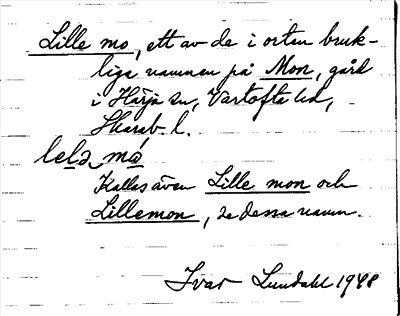 Lille mo, ett av de i orten bruk-
liga namnen på Mon, gård
i Härja sn, Vartofta hd,
Skarab. l.
lelə mó
Kallas även Lille mon och
Lillemon, se dessa namn.
Ivar Lundahl 1948